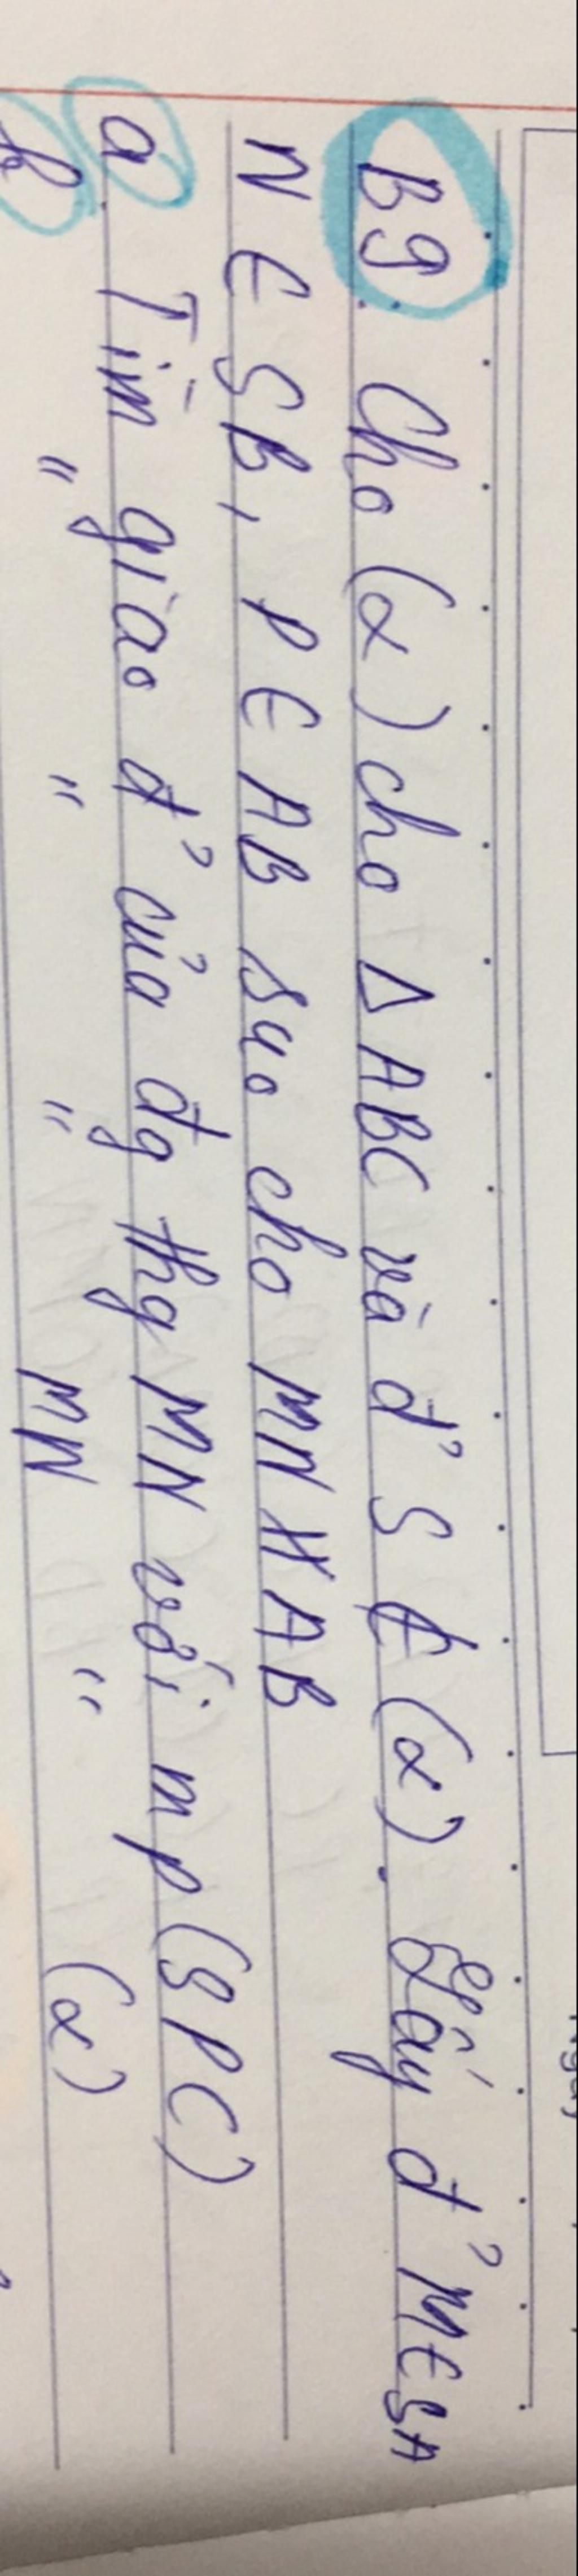 B9. Cho (α) cho Δ ABC và đ' S ∉ (α). Lấy đ' M ∈ SA
N ∈ SB, P ∈ AB sao cho MN ∦ AB
a. Tìm giao đ' của đg thg MN với mp (SPC)
b " " " MN " (α)